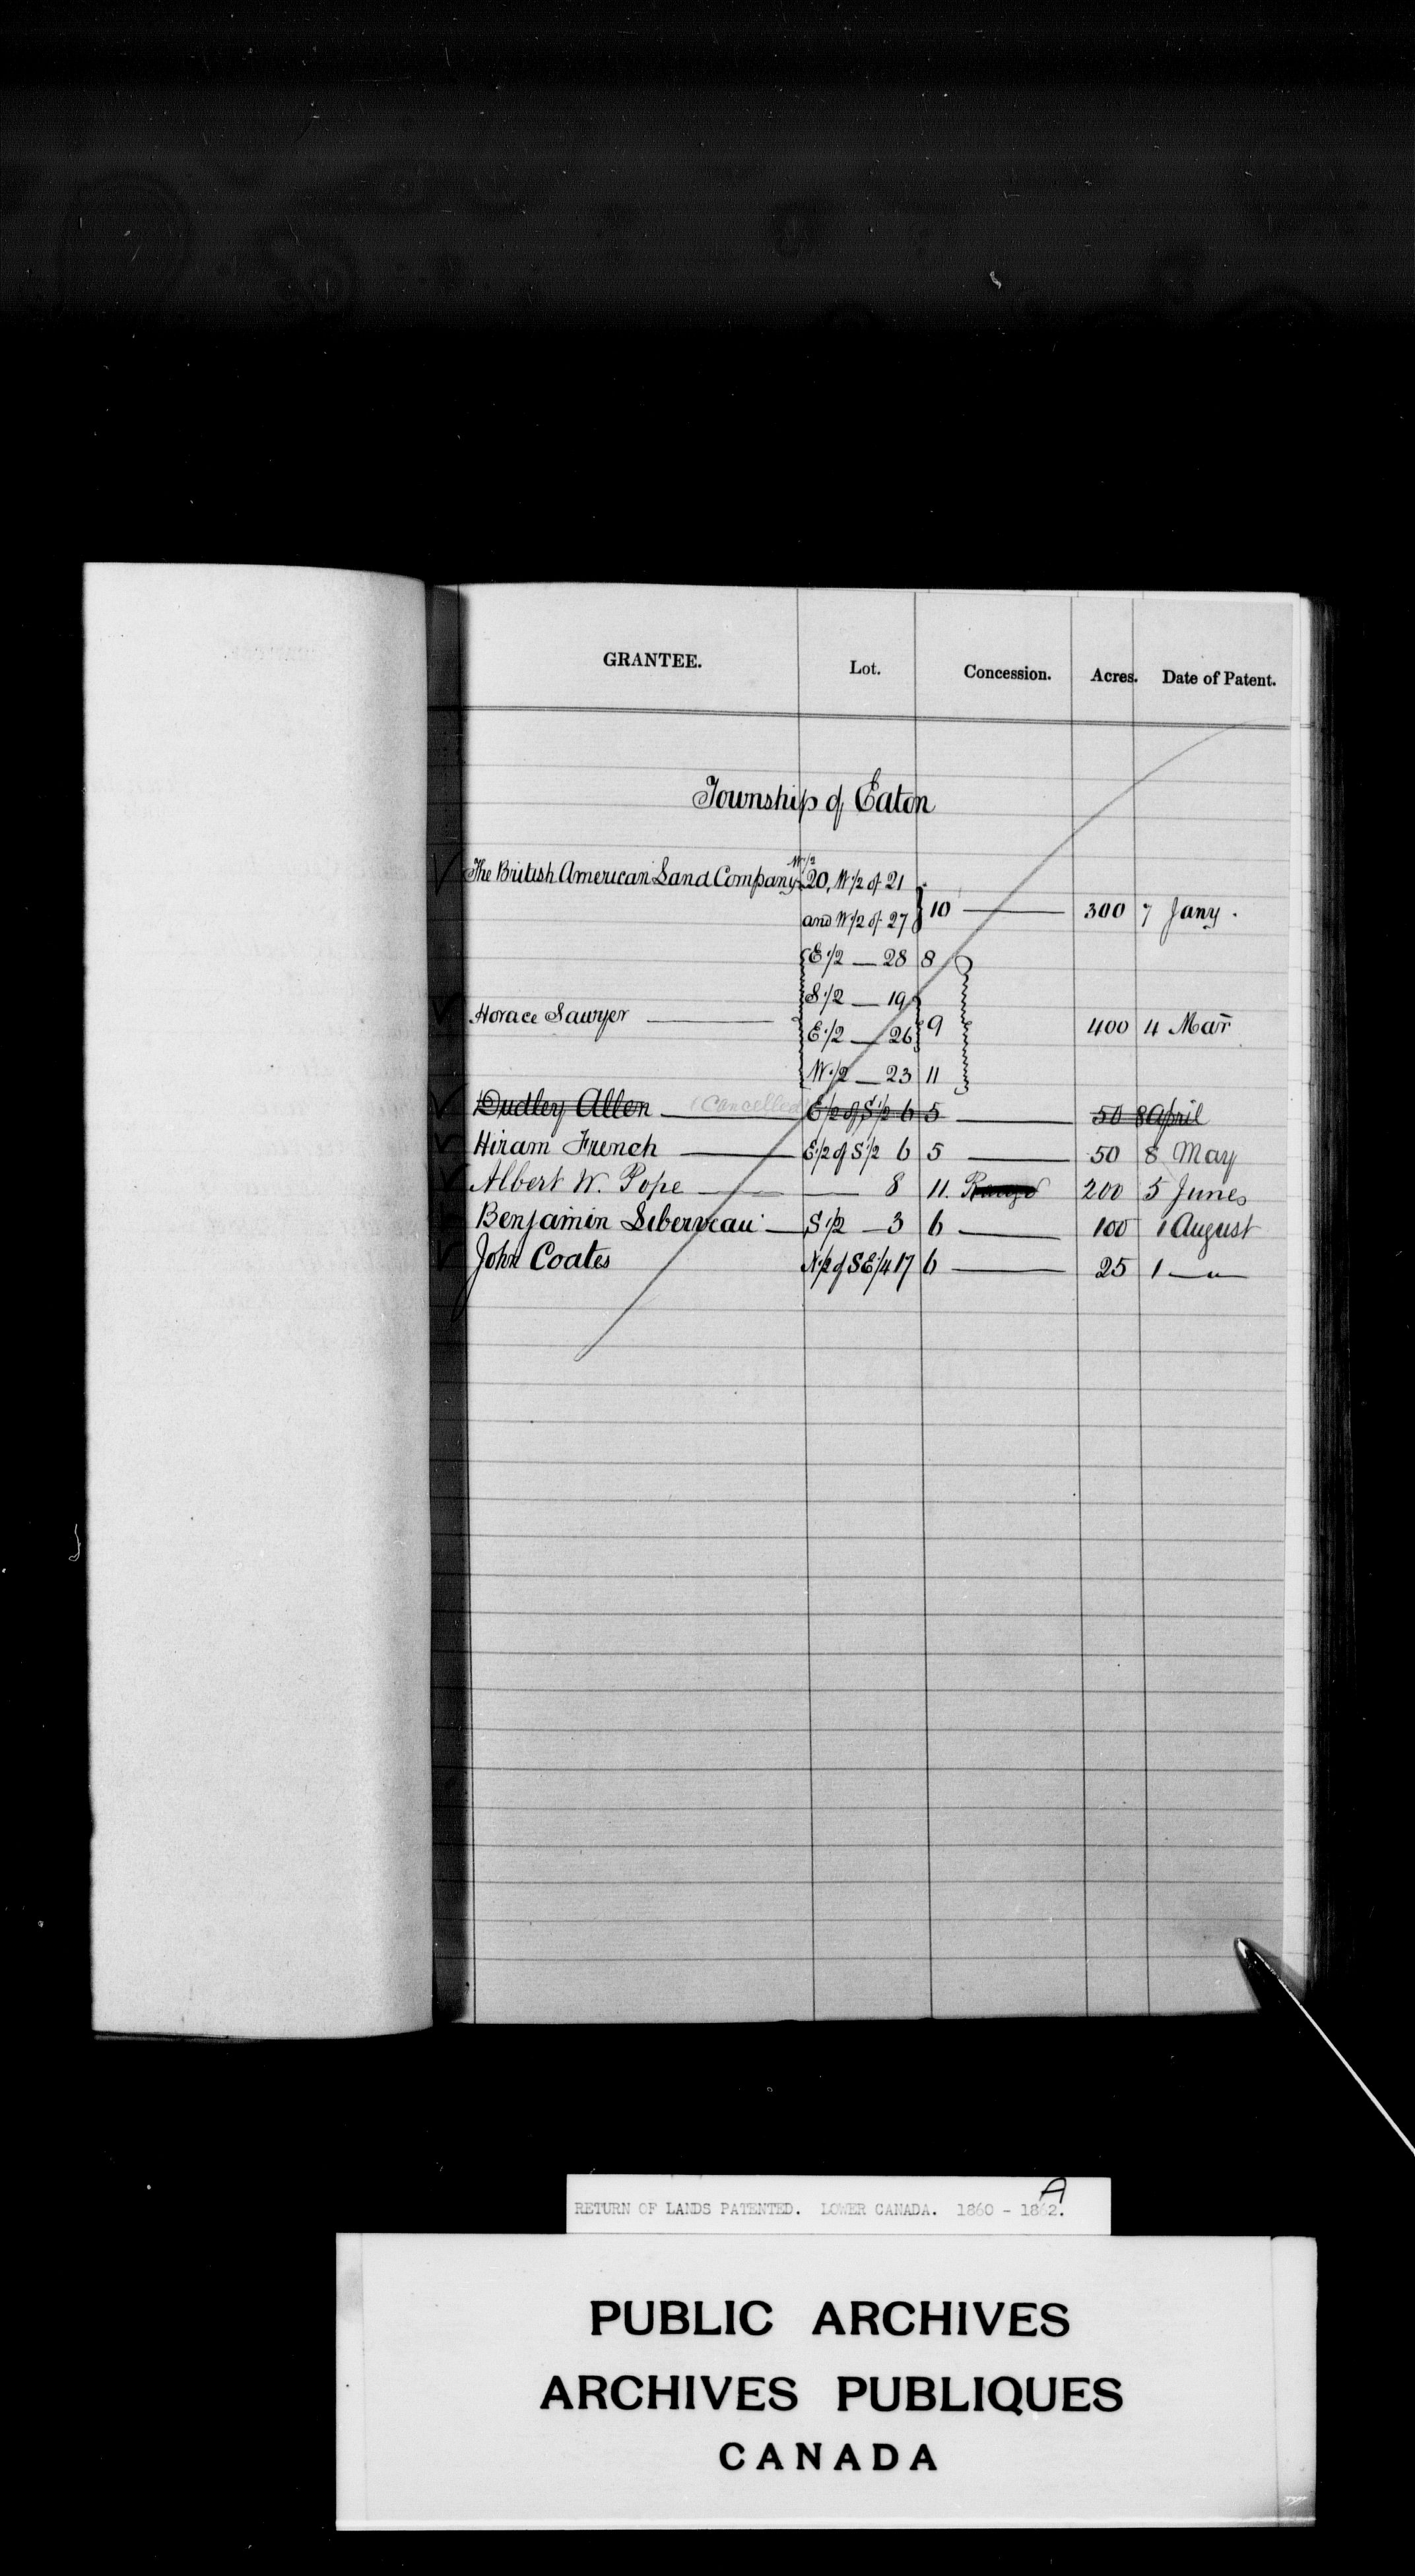 GRANTEE. Lot. Concession. Acres. Date of Patent.
Township of Eaton
The British American Land Company W 1/2 20, W 1/2 of 21
and W 1/2 of 27 } 10 300 7 Jany.
E 1/2 — 28 8
S 1/2 — 19
Horace Sawyer 400 4 Mar
E 1/2 — 26 9
W 1/2 — 23 11
Dudley Allen (Cancelled) E 1/2 of S 1/2 6 5 50 8 April
Hiram French E 1/2 of S 1/2 6 5 50 8 May
Albert W. Pope — 8 11. Range 200 5 June
Benjamin Liberveau S 1/2 — 3 6 100 1 August
John Coates N 1/2 of S E 1/4 17 6 25 1 — " —
RETURN OF LANDS PATENTED. LOWER CANADA. 1860 - 1862. A
PUBLIC ARCHIVES
ARCHIVES PUBLIQUES
CANADA